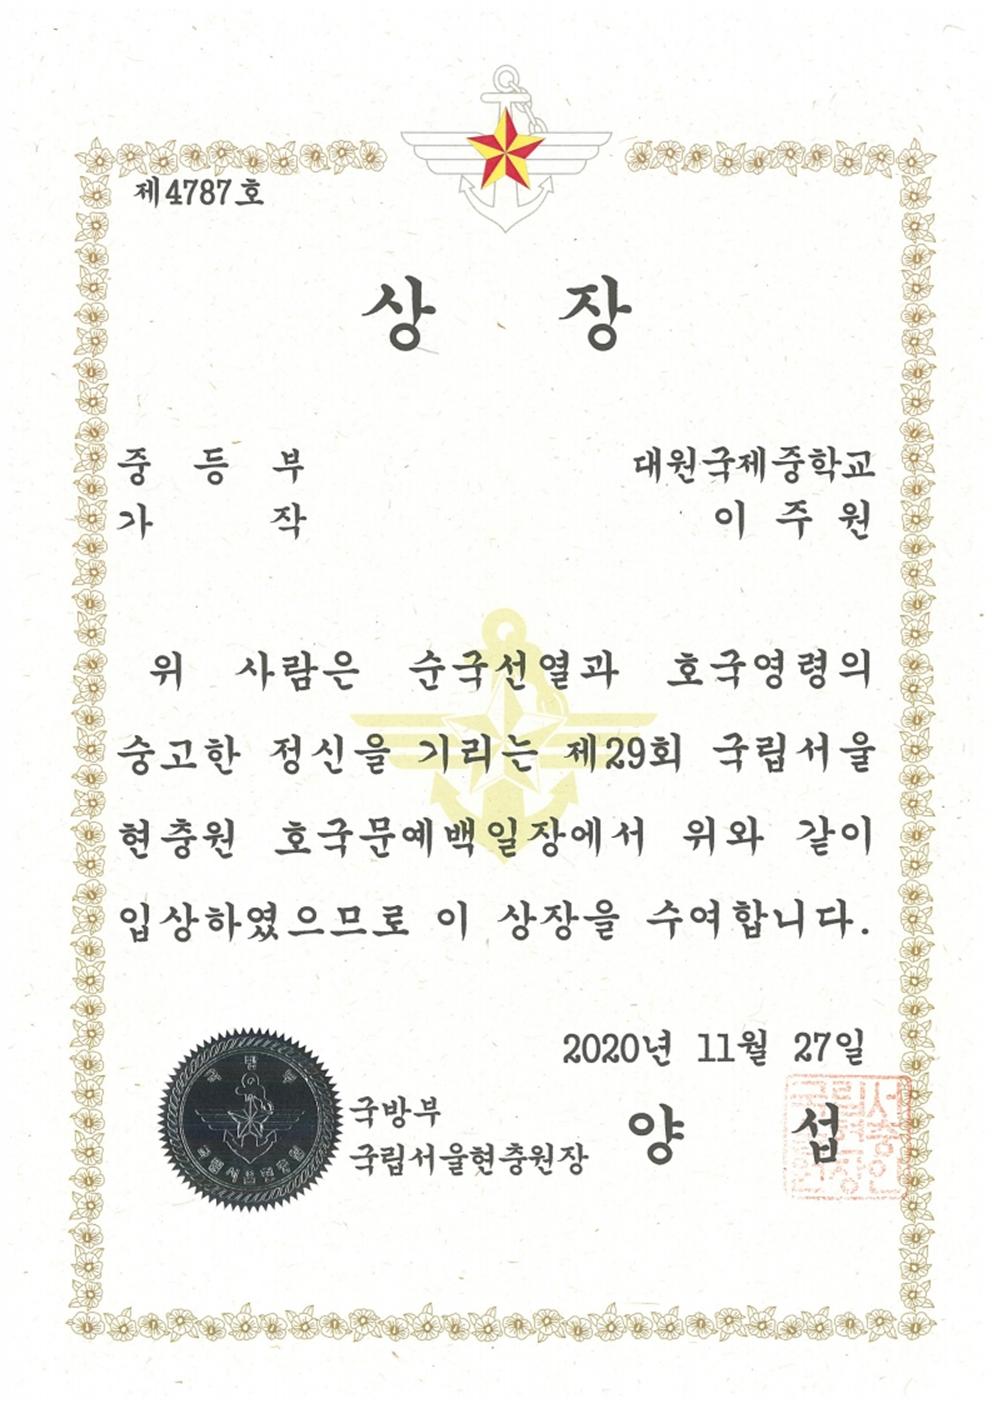 제4787호
상 장
중 등 부
대원국제중학교
가 작
이 주 원
위 사람은 순국선열과 호국영령의
숭고한 정신을 기리는 제29회 국립서울
현충원 호국문예백일장에서 위와 같이
입상하였으므로 이 상장을 수여합니다.
2020년 11월 27일
국방부
국립서울현충원장
양 섭
국방부
국립서울현충원
국립서
울현충
원장인